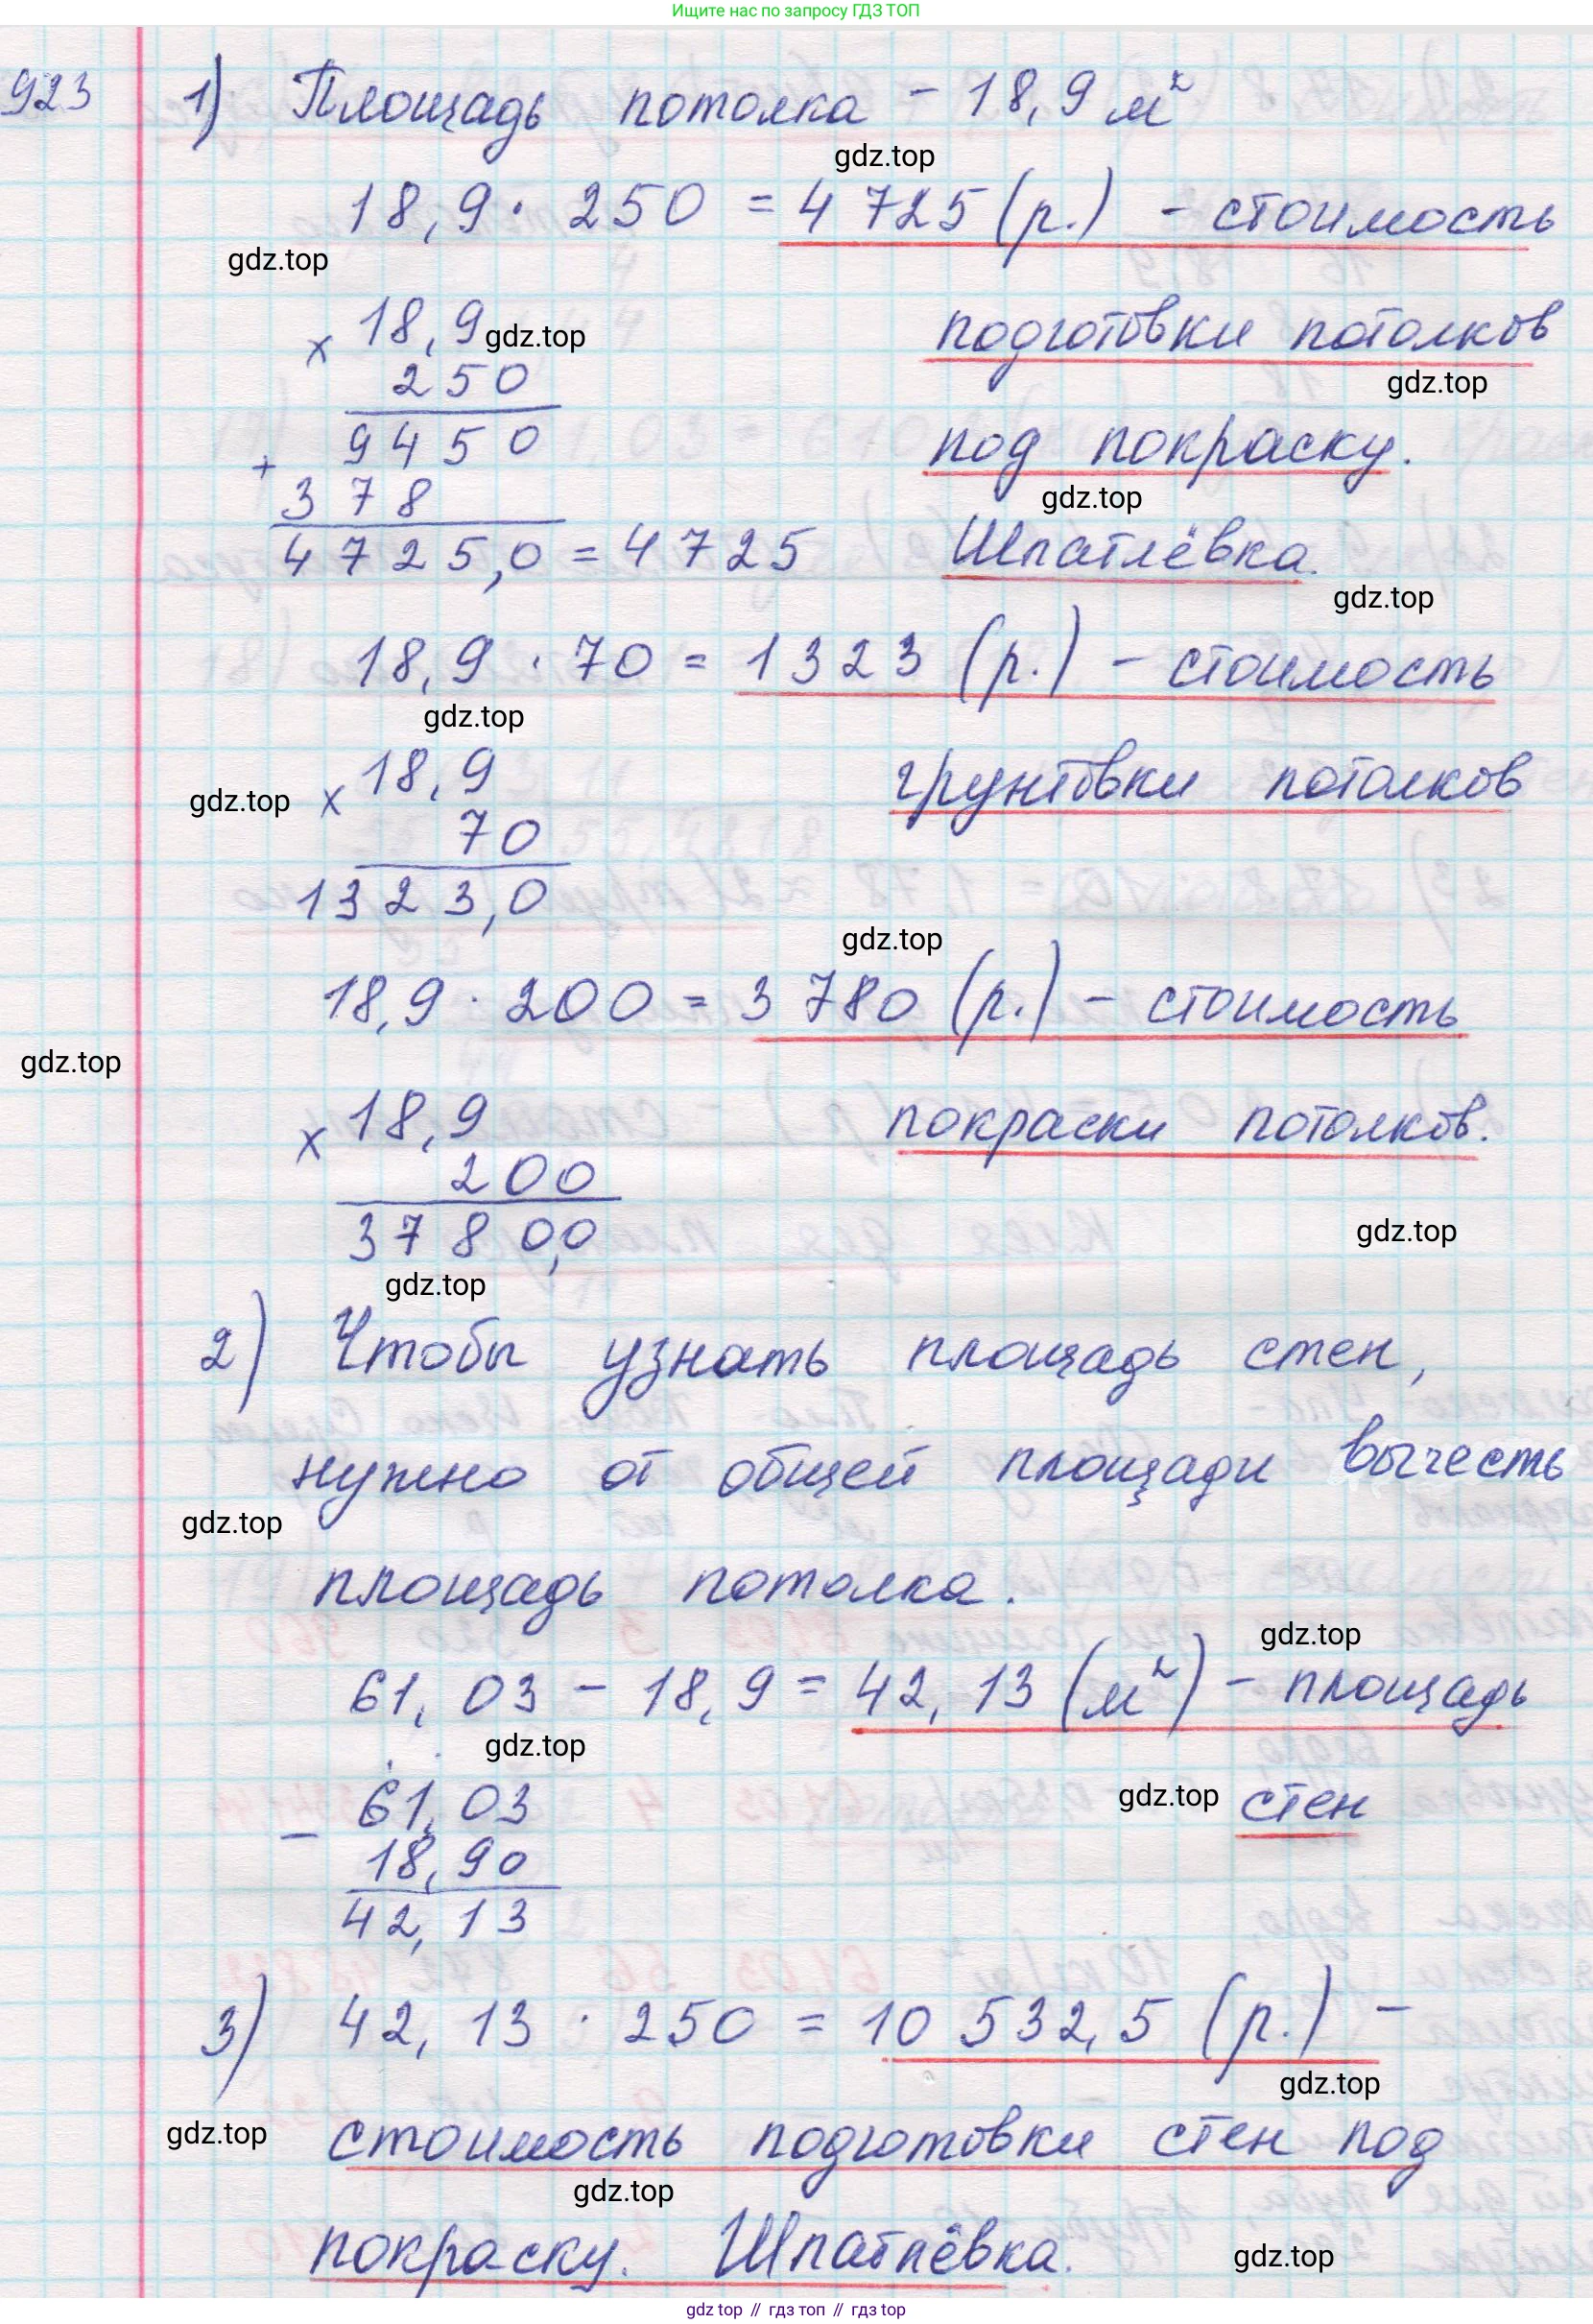 Ищите нас по запросу ГДЗ ТОП
923 1) Площадь потолка - 18,9 м²
gdz.top
18,9 · 250 = 4 725 (р.) - стоимость
gdz.top
× 18,9 gdz.top подготовки потолков
250 gdz.top
9450 под покраску.
+ 378 gdz.top
4725,0 = 4725 Шпатлёвка.
gdz.top
18,9 · 70 = 1323 (р.) - стоимость
gdz.top
gdz.top × 18,9 грунтовки потолков
70
1323,0
gdz.top
18,9 · 200 = 3 780 (р.) - стоимость
gdz.top
× 18,9 покраски потолков.
200
3780,0 gdz.top
gdz.top
2) Чтобы узнать площадь стен,
нужно от общей площади вычесть
gdz.top
площадь потолка.
gdz.top
61,03 - 18,9 = 42,13 (м²) - площадь
gdz.top
61,03 gdz.top стен
- 18,90
42,13
3) 42,13 · 250 = 10 532,5 (р.) -
gdz.top
gdz.top стоимость подготовки стен под
gdz.top
покраску. Шпатлёвка.
gdz.top
gdz top // гдз топ // gdz top